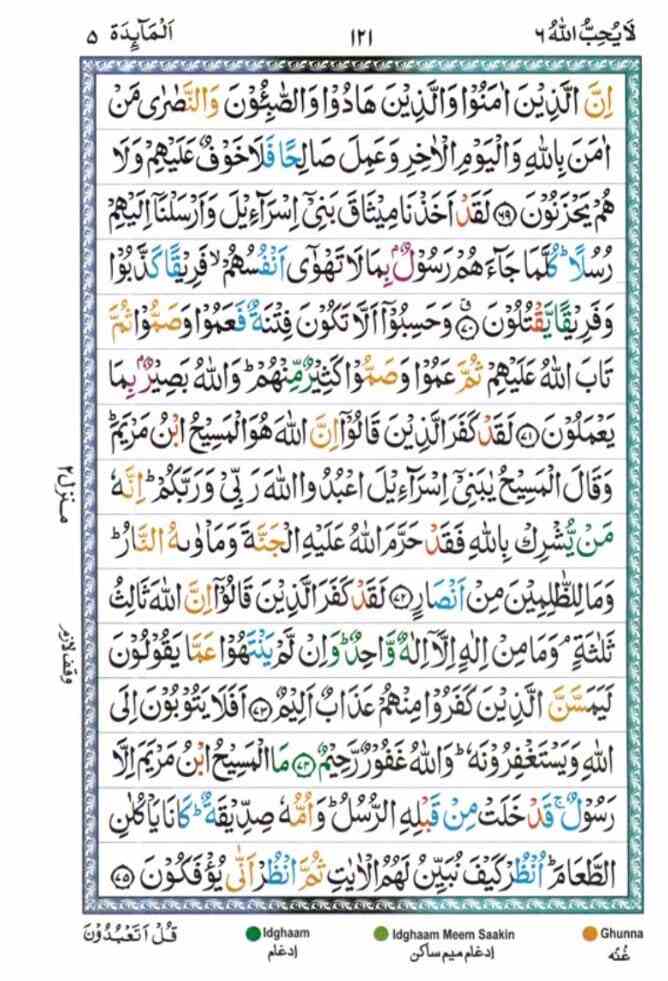 لَا يُحِبُّ اللهُ ٦ ١٢١ اَلْمَآئِدَة ٥
اِنَّ الَّذِيْنَ اٰمَنُوْا وَالَّذِيْنَ هَادُوْا وَالصّٰبِـُٔوْنَ وَالنَّصٰرٰى مَنْ
اٰمَنَ بِاللّٰهِ وَالْيَوْمِ الْاٰخِرِ وَعَمِلَ صَالِحًا فَلَا خَوْفٌ عَلَيْهِمْ وَلَا
هُمْ يَحْزَنُوْنَ ﴿٦٩﴾ لَقَدْ اَخَذْنَا مِيْثَاقَ بَنِيْٓ اِسْرَآءِيْلَ وَاَرْسَلْنَآ اِلَيْهِمْ
رُسُلًا ؕ كُلَّمَا جَآءَهُمْ رَسُوْلٌۢ بِمَا لَا تَهْوٰٓى اَنْفُسُهُمْ ۙ فَرِيْقًا كَذَّبُوْا
وَفَرِيْقًا يَّقْتُلُوْنَ ﴿٧٠﴾ۗ وَحَسِبُوْٓا اَلَّا تَكُوْنَ فِتْنَةٌ فَعَمُوْا وَصَمُّوْا ثُمَّ
تَابَ اللّٰهُ عَلَيْهِمْ ثُمَّ عَمُوْا وَصَمُّوْا كَثِيْرٌ مِّنْهُمْ ؕ وَاللّٰهُ بَصِيْرٌۢ بِمَا
يَعْمَلُوْنَ ﴿٧١﴾ لَقَدْ كَفَرَ الَّذِيْنَ قَالُوْٓا اِنَّ اللّٰهَ هُوَ الْمَسِيْحُ ابْنُ مَرْيَمَ ؕ
وَقَالَ الْمَسِيْحُ يٰبَنِيْٓ اِسْرَآءِيْلَ اعْبُدُوا اللّٰهَ رَبِّيْ وَرَبَّكُمْ ؕ اِنَّهٗ
مَنْ يُّشْرِكْ بِاللّٰهِ فَقَدْ حَرَّمَ اللّٰهُ عَلَيْهِ الْجَنَّةَ وَمَاْوٰىهُ النَّارُ ؕ
وَمَا لِلظّٰلِمِيْنَ مِنْ اَنْصَارٍ ﴿٧٢﴾ لَقَدْ كَفَرَ الَّذِيْنَ قَالُوْٓا اِنَّ اللّٰهَ ثَالِثُ
ثَلٰثَةٍ ۘ وَمَا مِنْ اِلٰهٍ اِلَّآ اِلٰهٌ وَّاحِدٌ ؕ وَاِنْ لَّمْ يَنْتَهُوْا عَمَّا يَقُوْلُوْنَ
لَيَمَسَّنَّ الَّذِيْنَ كَفَرُوْا مِنْهُمْ عَذَابٌ اَلِيْمٌ ﴿٧٣﴾ اَفَلَا يَتُوْبُوْنَ اِلَى
اللّٰهِ وَيَسْتَغْفِرُوْنَهٗ ؕ وَاللّٰهُ غَفُوْرٌ رَّحِيْمٌ ﴿٧٤﴾ مَا الْمَسِيْحُ ابْنُ مَرْيَمَ اِلَّا
رَسُوْلٌ ۚ قَدْ خَلَتْ مِنْ قَبْلِهِ الرُّسُلُ ؕ وَاُمُّهٗ صِدِّيْقَةٌ ؕ كَانَا يَاْكُلٰنِ
الطَّعَامَ ؕ اُنْظُرْ كَيْفَ نُبَيِّنُ لَهُمُ الْاٰيٰتِ ثُمَّ انْظُرْ اَنّٰى يُؤْفَكُوْنَ ﴿٧٥﴾
منزل ٢
وقف لازم
قُلْ اَتَعْبُدُوْنَ
Idghaam
ادغام
Idghaam Meem Saakin
ادغام میم ساکن
Ghunna
غُنّه